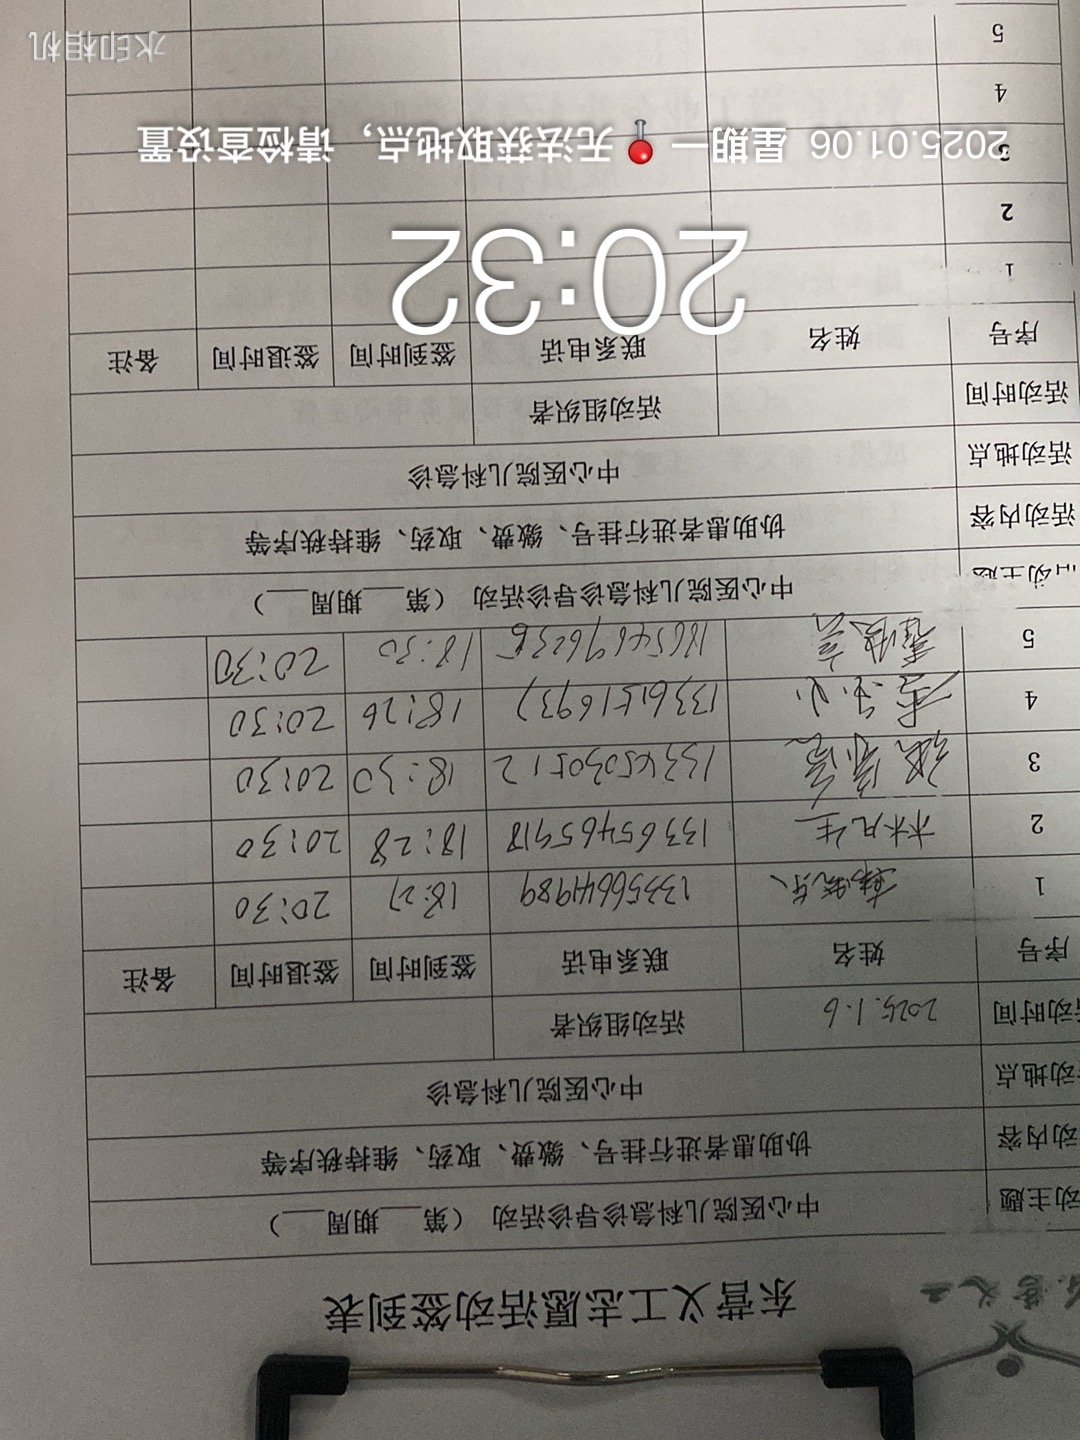 东营义工
东营义工志愿活动签到表
动主题 中心医院儿科急诊导诊活动（第___期周___）
动内容 协助患者进行挂号、缴费、取药、维持秩序等
动地点 中心医院儿科急诊
动时间 2025.1.6 活动组织者
序号 姓名 联系电话 签到时间 签退时间 备注
1 13356644989 18:27 20:30
2 林凡生 13365465918 18:28 20:30
3 13345030512 18:30 20:30
4 13361516937 18:26 20:30
5 18654696236 18:30 20:30
活动主题 中心医院儿科急诊导诊活动（第___期周___）
活动内容 协助患者进行挂号、缴费、取药、维持秩序等
活动地点 中心医院儿科急诊
活动时间 活动组织者
序号 姓名 联系电话 签到时间 签退时间 备注
1
2
3
4
5
20:32
2025.01.06 星期一 无法获取地点，请检查设置
水印相机